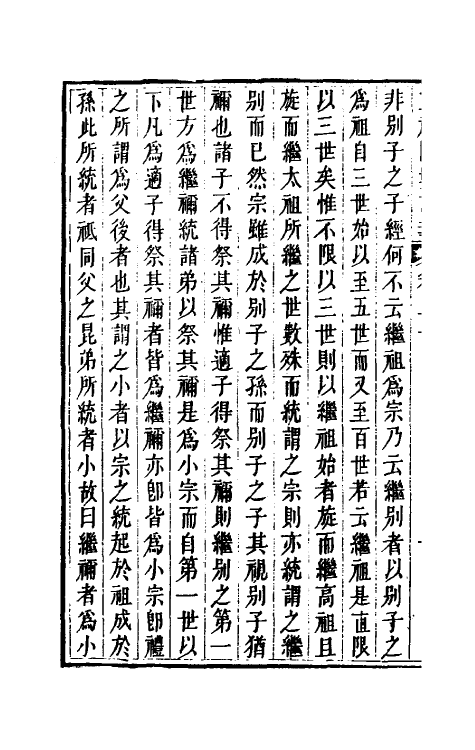 非別子之子經何不云繼祖爲宗乃云繼別者以別子之
爲祖自三世始以至五世而又至百世若云繼祖是直限
以三世矣惟不限以三世則以繼祖始者旋而繼高祖且
旋而繼太祖所繼之世數殊而統謂之宗則亦統謂之繼
別而已然宗雖成於別子之孫而別子之子其視別子猶
禰也諸子不得祭其禰惟適子得祭其禰則繼別之第一
世方爲繼禰統諸弟以祭其禰是爲小宗而自第一世以
下凡爲適子得祭其禰者皆爲繼禰亦卽皆爲小宗卽禮
之所謂爲父後者也其謂之小者以宗之統起於祖成於
孫此所統者祗同父之昆弟所統者小故曰繼禰者爲小